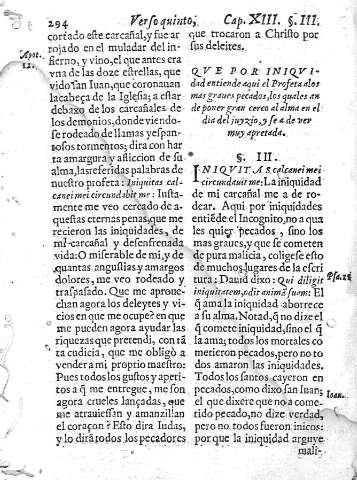 294
Verso quinto,
Cap. XIII. §. III.
cortado este carcañal, y fue ar
rojado en el muladar del in-
fierno, y vino, el que antes era
vna de las doze estrellas, que
vido san Iuan, que coronauan
la cabeça de la Iglesia; a estar
debaxo de los carcañales de
los demonios, donde viendo-
se rodeado de llamas y espan-
tosos tormentos; dira con har
ta amargura y afliccion de su
alma, las referidas palabras de
nuestro profeta: Iniquitas cal
canei mei circundabit me: Iusta-
mente me veo cercado de a-
questas eternas penas, que me
recieron las iniquidades, de
mi carcañal y desenfrenada
vida: O miserable de mi, y de
quantas angustias y amargos
dolores, me veo rodeado y
traspasado. Que me aproue-
chan agora los deleytes y vi-
cios en que me ocupe? en que
me pueden agora ayudar las
riquezas que pretendi, con tã
ta cudicia, que me obligò a
vender a mi proprio maestro:
Pues todos los gustos y apeti-
tos a q̃ me entregue, me son
agora crueles lançadas, que
me atrauiessan y amanzillan
el coraçon? Esto dira Iudas,
y lo dirà todos los pecadores
Apoc.
12.
que trocaron a Christo por
sus deleites.
QVE POR INIQVI-
dad entiende aqui el Profeta a los
mas graues pecados, los quales an
de poner gran cerco al alma en el
dia del juyzio, y se a de ver
muy apretada.
§. III.
INIQVITAS calcanei mei
circundauit me: La iniquidad
de mi carcañal me a de ro-
dear. Aqui por iniquidades
entiẽde el Incognito, no a qua
les quier pecados, sino los
mas graues, y que se cometen
de pura malicia, coligese esto
de muchos lugares de la escri
tura: Dauid dixo: Qui diligit
iniquitatem, odit animã suam: El
q̃ ama la iniquidad aborrece
a su alma. Notad, q̃ no dize el
q̃ comete iniquidad, sino el q̃
la ama; todos los mortales co
metieron pecados, pero no to
dos amaron las iniquidades.
Todos los santos cayeron en
pecados, como dixo san Iuan;
el que dixere que no a come-
tido pecado, no dize verdad,
pero no todos fueron inicos:
por que la iniquidad arguye
mali-
Ioan.